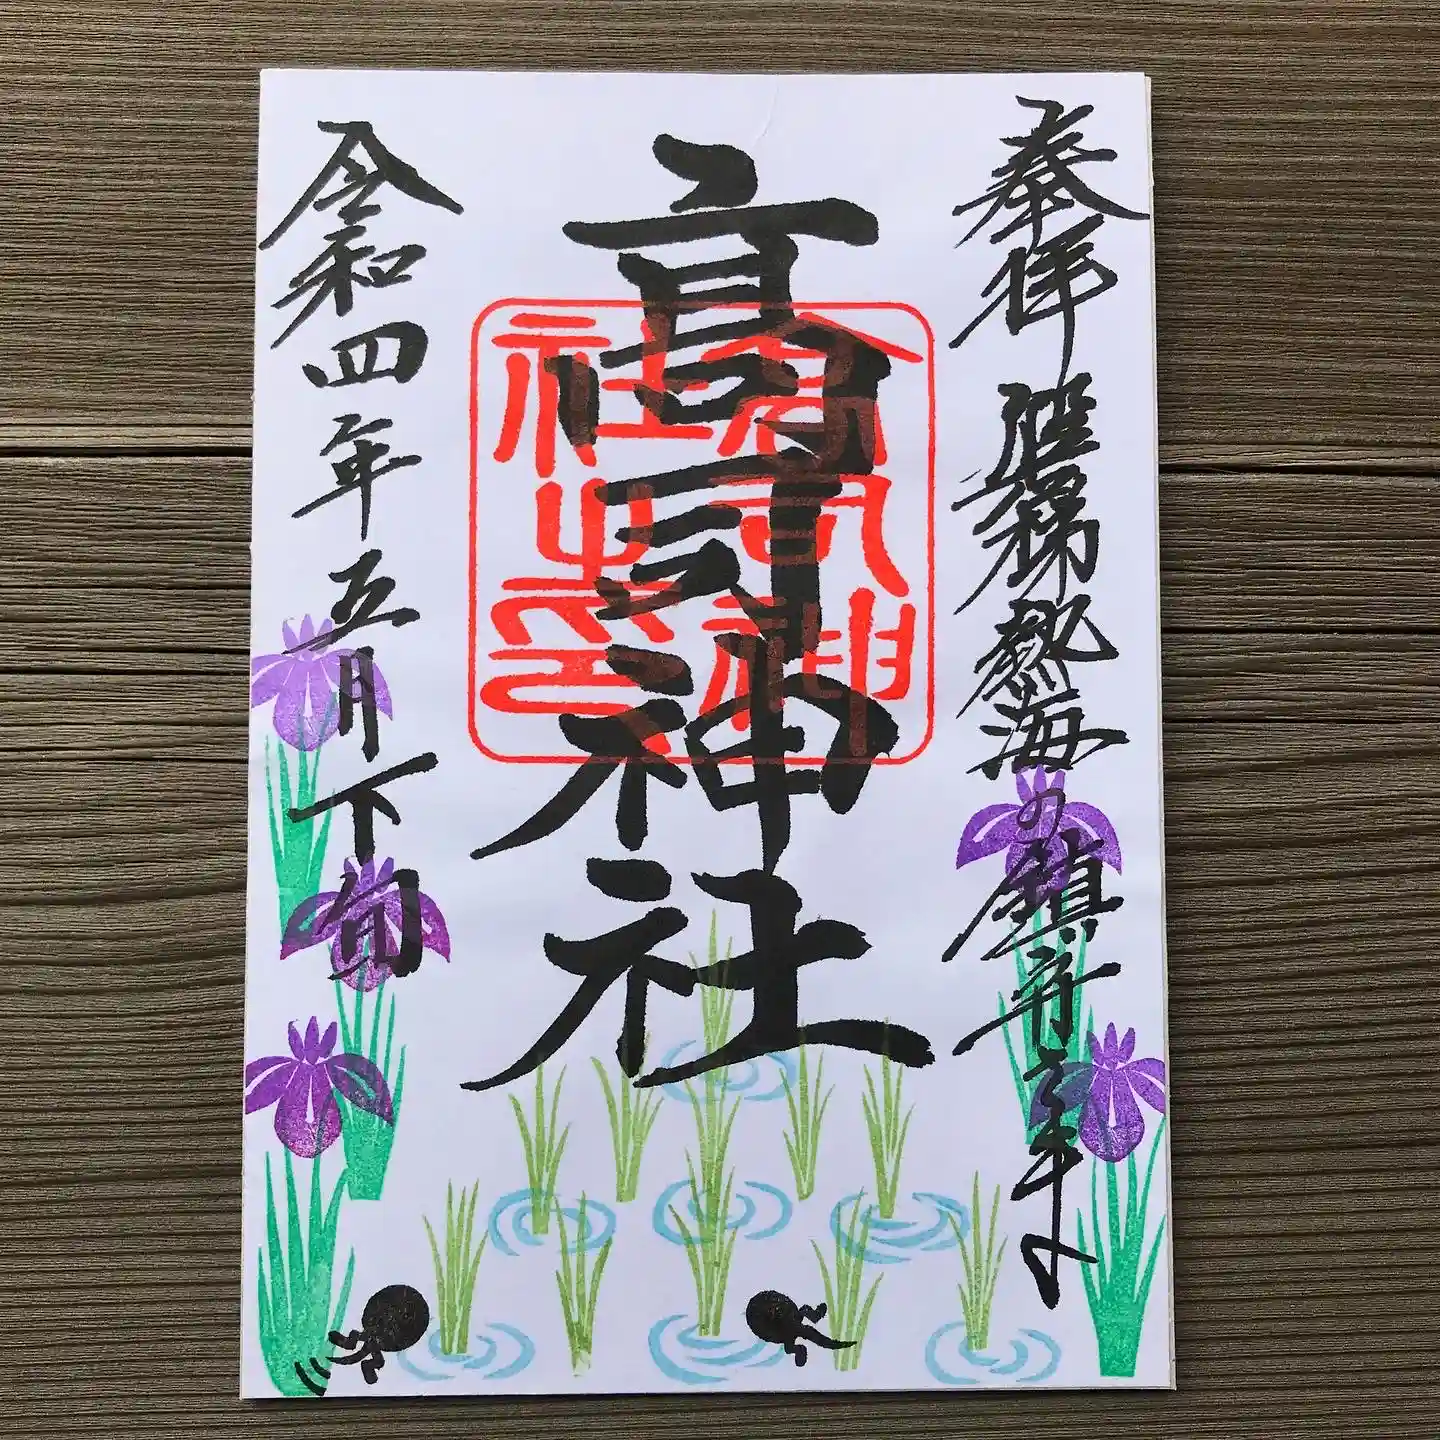 奉拝 磐梯熱海の鎮守
高司神社
高司神
社之印
令和四年五月下旬